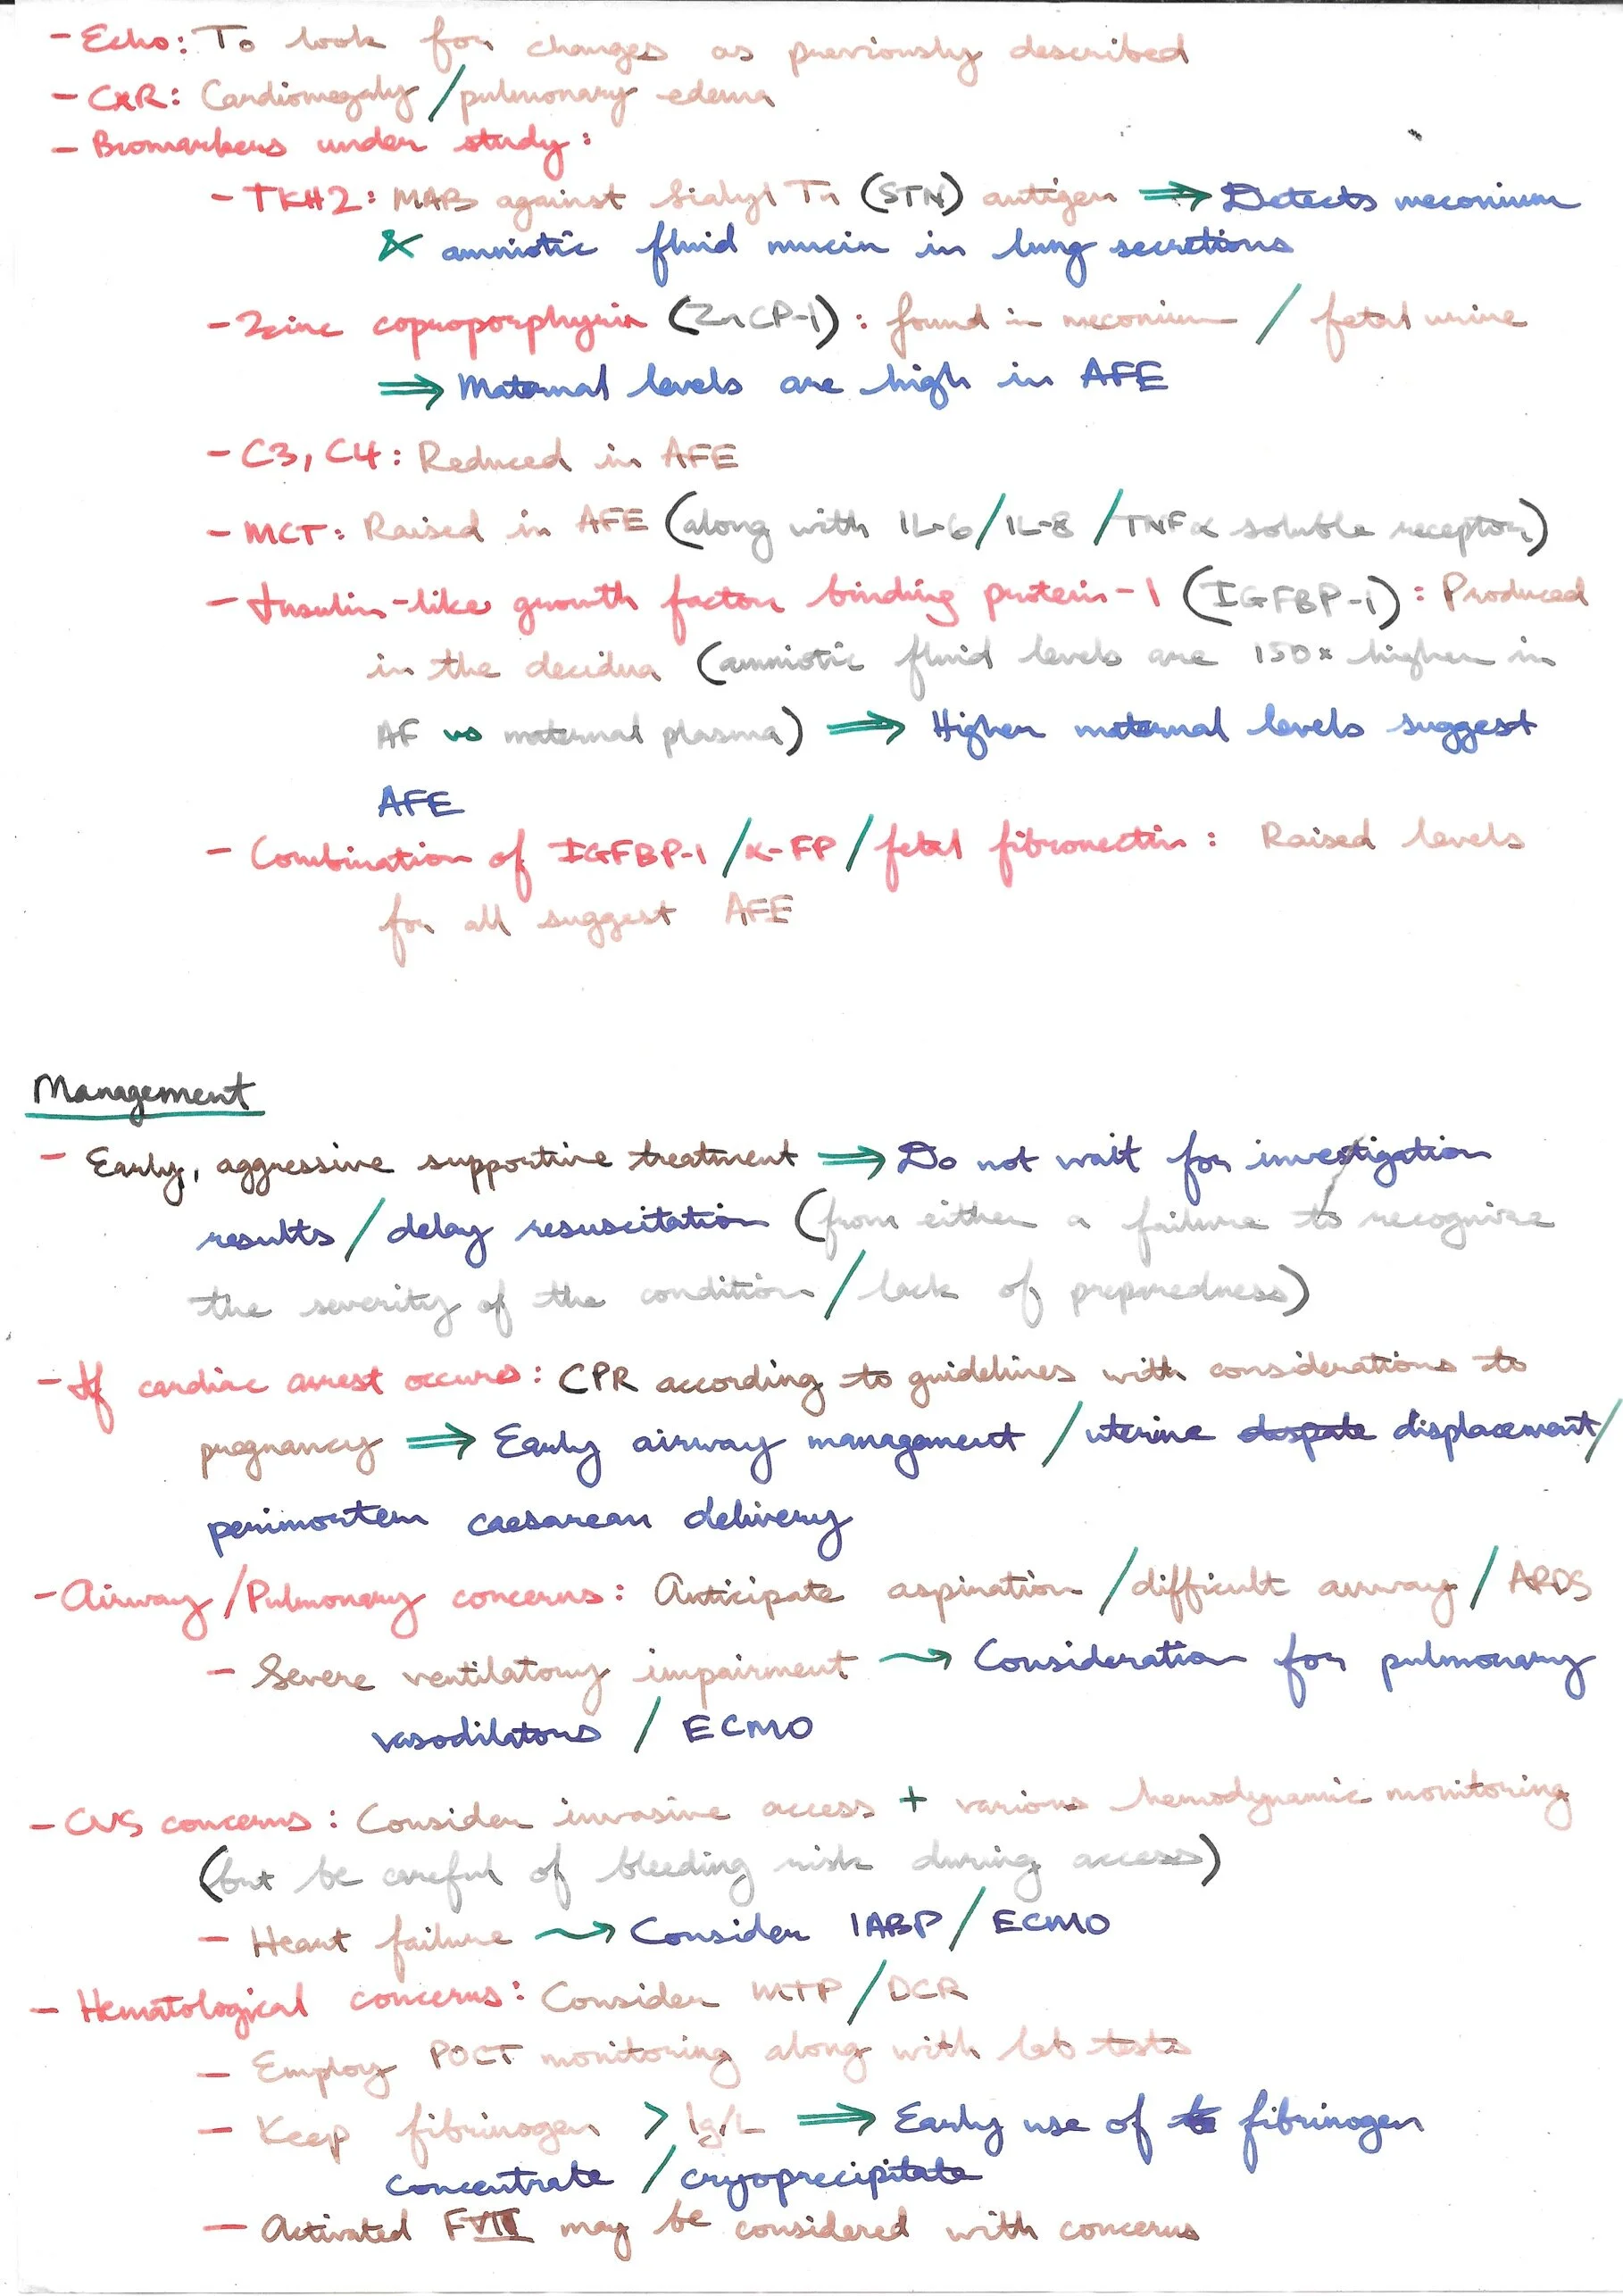 - Echo: To look for changes as previously described
- CXR: Cardiomegaly / pulmonary edema
- Biomarkers under study:
- TKH2: MAB against Sialyl Tn (STN) antigen ⇒ Detects meconium
& amniotic fluid mucin in lung secretions
- Zinc coproporphyrin (ZnCP-1): found in meconium / fetal urine
⇒ Maternal levels are high in AFE
- C3, C4: Reduced in AFE
- MCT: Raised in AFE (along with IL-6 / IL-8 / TNFα soluble receptor)
- Insulin-like growth factor binding protein-1 (IGFBP-1): Produced
in the decidua (amniotic fluid levels are 150x higher in
AF vs maternal plasma) ⇒ Higher maternal levels suggest
AFE
- Combination of IGFBP-1 / α-FP / fetal fibronectin: Raised levels
for all suggest AFE
Management
- Early, aggressive supportive treatment ⇒ Do not wait for investigation
results / delay resuscitation (from either a failure to recognize
the severity of the condition / lack of preparedness)
- If cardiac arrest occurs: CPR according to guidelines with considerations to
pregnancy ⇒ Early airway management / uterine displacement /
perimortem caesarean delivery
- Airway / Pulmonary concerns: Anticipate aspiration / difficult airway / ARDS
- Severe ventilatory impairment ⇝ Consideration for pulmonary
vasodilators / ECMO
- CVS concerns: Consider invasive access + various hemodynamic monitoring
(but be careful of bleeding risk during access)
- Heart failure ⇝ Consider IABP / ECMO
- Hematological concerns: Consider MTP / DCR
- Employ POCT monitoring along with lab tests
- Keep fibrinogen > 1g/L ⇒ Early use of fibrinogen
concentrate / cryoprecipitate
- Activated FVII may be considered with concerns